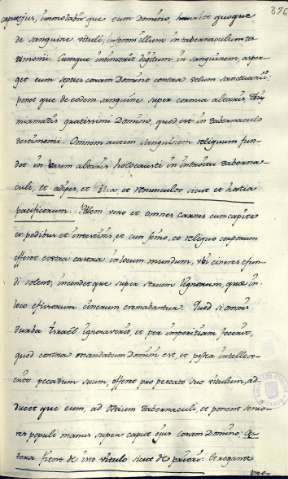 caput ejus, immolabit que eum Domino, hauriet quoque
de sanguine vituli, inferens illum in tabernaculum tes
timonii. Cumque intinxerit digitum in sanguinem, asper
get eum septies coram Domino contra velum sanctuarii
ponet que de eodem sanguine super cornua altaris thy
miamatis gratissimi Domino, quod est in tabernaculo
testimonii. Omnem autem sanguinem reliquum fun
det in basim altaris holocausti in introitu taberna
culi, et adipem et
et renunculos sicut et hostia
pacificorum. Pellem vero et omnes carnes cum capite
et pedibus et intestinis, et cum fimo, et reliquo corpore
efferet extra castra in locum mundum, ubi cineres fun
di solent, incendet que super struem lignorum, quæ in
loco effusorum cinerum cremabuntur. Quod si omnis
turba Israël ignoraverit, et per imperitiam fecerit,
quod contra mandatum Domini est, et postea intellexe
rit peccatum suum, offeret pro peccato suo vitulum, ad
ducet que eum, ad ostium tabernaculi, et ponent senio
res populi manus super caput ejus coram Domino
fient de vitulo sicut de priori. Et rogante